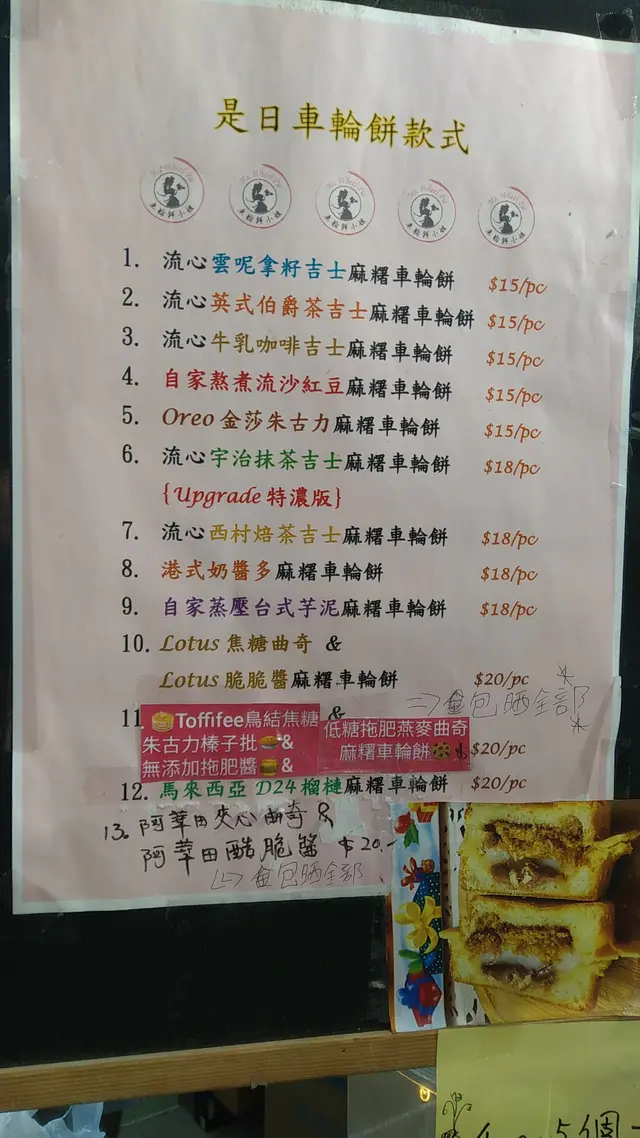 是日車輪餅款式
車輪餅小姐 車輪餅小姐 車輪餅小姐 車輪餅小姐 車輪餅小姐
1. 流心雲呢拿籽吉士麻糬車輪餅 $15/pc
2. 流心英式伯爵茶吉士麻糬車輪餅 $15/pc
3. 流心牛乳咖啡吉士麻糬車輪餅 $15/pc
4. 自家熬煮流沙紅豆麻糬車輪餅 $15/pc
5. Oreo 金莎朱古力麻糬車輪餅 $15/pc
6. 流心宇治抹茶吉士麻糬車輪餅 $18/pc
{Upgrade 特濃版}
7. 流心西村焙茶吉士麻糬車輪餅 $18/pc
8. 港式奶醬多麻糬車輪餅 $18/pc
9. 自家蒸壓台式芋泥麻糬車輪餅 $18/pc
10. Lotus 焦糖曲奇 &
Lotus 脆脆醬麻糬車輪餅 $20/pc
⇒ 食包晒全部
11. Toffifee鳥結焦糖 &
朱古力榛子批 &
無添加拖肥醬 &
低糖拖肥燕麥曲奇
麻糬車輪餅 $20/pc
12. 馬來西亞 D24 榴槤麻糬車輪餅 $20/pc
13. 阿華田夾心曲奇 &
阿華田酷脆醬 $20.-
食包晒全部
5個